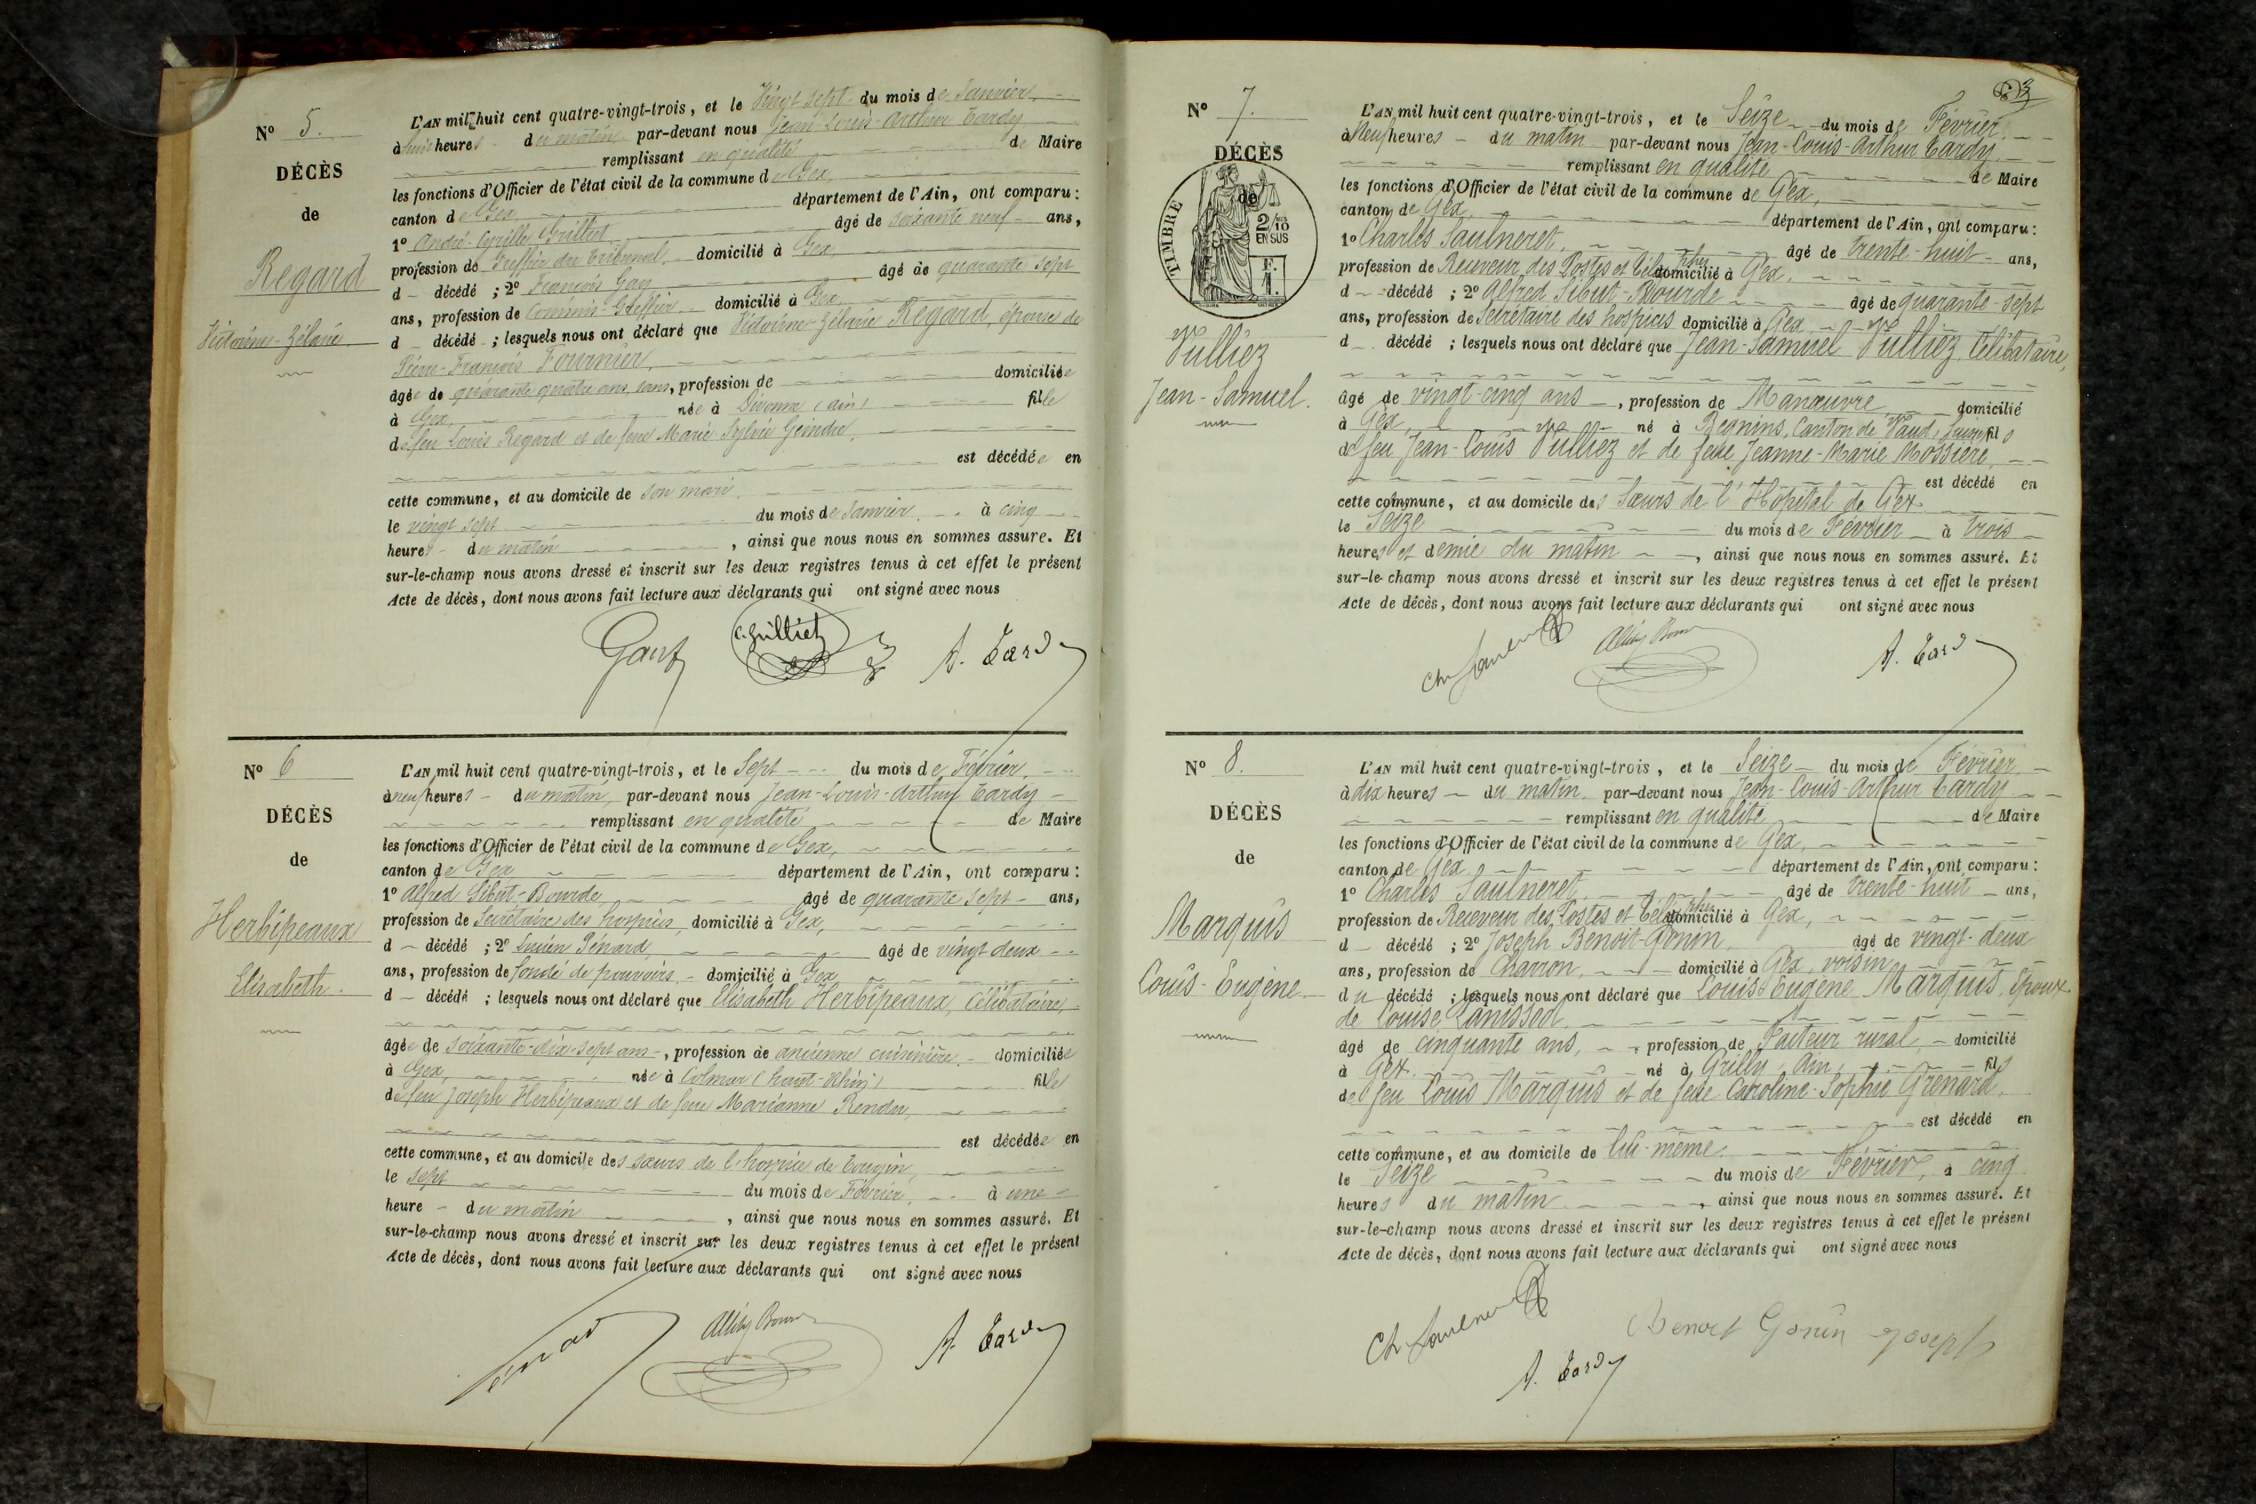 N° 5.
DÉCÈS
de
Regard
Victorine-Zélavie
L'AN mil huit cent quatre-vingt-trois, et le Vingt sept du mois de Janvier
à huit heures du matin par-devant nous Jean-Louis-Arthur Tardy
remplissant en qualité de Maire
les fonctions d'Officier de l'état civil de la commune de Gex,
canton de Gex département de l'Ain, ont comparu :
1° André-Cyrille Grilliet âgé de soixante neuf ans,
profession de Greffier du Tribunal domicilié à Gex,
d décédé ; 2° François Gay âgé de quarante sept
ans, profession de Commis-Greffier domicilié à Gex,
d décédé ; lesquels nous ont déclaré que Victorine-Zélavie Regard, épouse de
Pierre-François Fournier,
âgée de quarante quatre ans, sans, profession de domiciliée
à Gex, née à Divonne (Ain) fille
de feu Louis Regard et de feue Marie Sylvie Gendre,
est décédée en
cette commune, et au domicile de son mari
le vingt sept du mois de Janvier à cinq
heures du matin, ainsi que nous nous en sommes assuré. Et
sur-le-champ nous avons dressé et inscrit sur les deux registres tenus à cet effet le présent
Acte de décès, dont nous avons fait lecture aux déclarants qui ont signé avec nous
C. Grilliet A. Tardy
N° 6
DÉCÈS
de
Herbipeaux
Elisabeth
L'AN mil huit cent quatre-vingt-trois, et le Sept du mois de Février,
à neuf heures du matin, par-devant nous Jean-Louis-Arthur Tardy
remplissant en qualité de Maire
les fonctions d'Officier de l'état civil de la commune de Gex,
canton de Gex département de l'Ain, ont comparu :
1° Alfred Sibut-Bourde âgé de quarante sept ans,
profession de Secrétaire des hospices, domicilié à Gex,
d décédé ; 2° Lucien Pénard, âgé de vingt deux
ans, profession de fondé de pouvoirs domicilié à Gex
d décédé ; lesquels nous ont déclaré que Elisabeth Herbipeaux, Célibataire,
âgée de soixante-dix-sept ans, profession de ancienne cuisinière domiciliée
à Gex, née à Colmar (haut-Rhin) fille
de feu Joseph Herbipeaux et de feue Marianne Render,
est décédée en
cette commune, et au domicile des sœurs de l'hospice de Tougin,
le sept du mois de Février, à une
heure du matin, ainsi que nous nous en sommes assuré. Et
sur-le-champ nous avons dressé et inscrit sur les deux registres tenus à cet effet le présent
Acte de décès, dont nous avons fait lecture aux déclarants qui ont signé avec nous
Pénard A. Tardy
N° 7.
DÉCÈS
de
TIMBRE
2/10
EN SUS
Vulliez
Jean-Samuel.
L'AN mil huit cent quatre-vingt-trois, et le Seize du mois de Février
à Neuf heures du matin par-devant nous Jean-Louis-Arthur Tardy
remplissant en qualité de Maire
les fonctions d'Officier de l'état civil de la commune de Gex,
canton de Gex département de l'Ain, ont comparu :
1° Charles Saulneret, âgé de trente-huit ans,
profession de Receveur des Postes et Télégraphes domicilié à Gex,
d décédé ; 2° Alfred Sibut-Bourde âgé de quarante-sept
ans, profession de Secrétaire des hospices domicilié à Gex
d décédé ; lesquels nous ont déclaré que Jean-Samuel Vulliez Célibataire,
âgé de vingt-cinq ans, profession de Manœuvre domicilié
à Gex, né à Begnins, Canton de Vaud, Suisse fils
de feu Jean-Louis Vulliez et de feue Jeanne-Marie Mossière,
est décédé en
cette commune, et au domicile des Sœurs de l'Hôpital de Gex
le Seize du mois de Février à trois
heures et demie du matin, ainsi que nous nous en sommes assuré. Et
sur-le-champ nous avons dressé et inscrit sur les deux registres tenus à cet effet le présent
Acte de décès, dont nous avons fait lecture aux déclarants qui ont signé avec nous
Ch Saulneret A. Tardy
N° 8.
DÉCÈS
de
Marquis
Louis-Eugène
L'AN mil huit cent quatre-vingt-trois, et le Seize du mois de Février
à dix heures du matin par-devant nous Jean-Louis-Arthur Tardy
remplissant en qualité de Maire
les fonctions d'Officier de l'état civil de la commune de Gex,
canton de Gex département de l'Ain, ont comparu :
1° Charles Saulneret, âgé de trente-huit ans,
profession de Receveur des Postes et Télégraphes domicilié à Gex,
d décédé ; 2° Joseph Benoit-Gonin, âgé de vingt-deux
ans, profession de Charron, domicilié à Gex, voisin
du décédé ; lesquels nous ont déclaré que Louis-Eugène Marquis, Époux
de Louise Lanissod
âgé de cinquante ans, profession de Facteur rural, domicilié
à Gex né à Grilly, Ain, fils
de feu Louis Marquis et de feue Caroline-Sophie Grenard,
est décédé en
cette commune, et au domicile de lui-même
le Seize du mois de Février, à cinq
heures du matin, ainsi que nous nous en sommes assuré. Et
sur-le-champ nous avons dressé et inscrit sur les deux registres tenus à cet effet le présent
Acte de décès, dont nous avons fait lecture aux déclarants qui ont signé avec nous
Ch Saulneret Benoit Gonin Joseph
A. Tardy